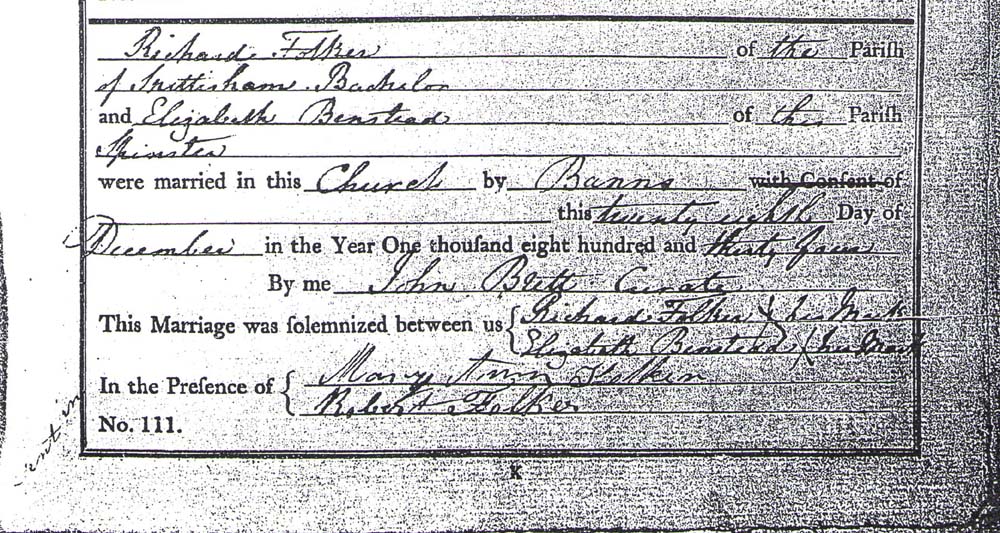 Richard Folker of the Pariſh
of Snettisham Bachelor
and Elizabeth Benstead of this Pariſh
Spinster
were married in this Church by Banns with Conſent of
this twenty eighth Day of
December in the Year One thouſand eight hundred and thirty four
By me John Brett Curate
This Marriage was ſolemnized between us { Richard Folker } his Mark
Elizabeth Benstead } her Mark
In the Preſence of { Mary Ann
Robert Folker
No. 111.
K